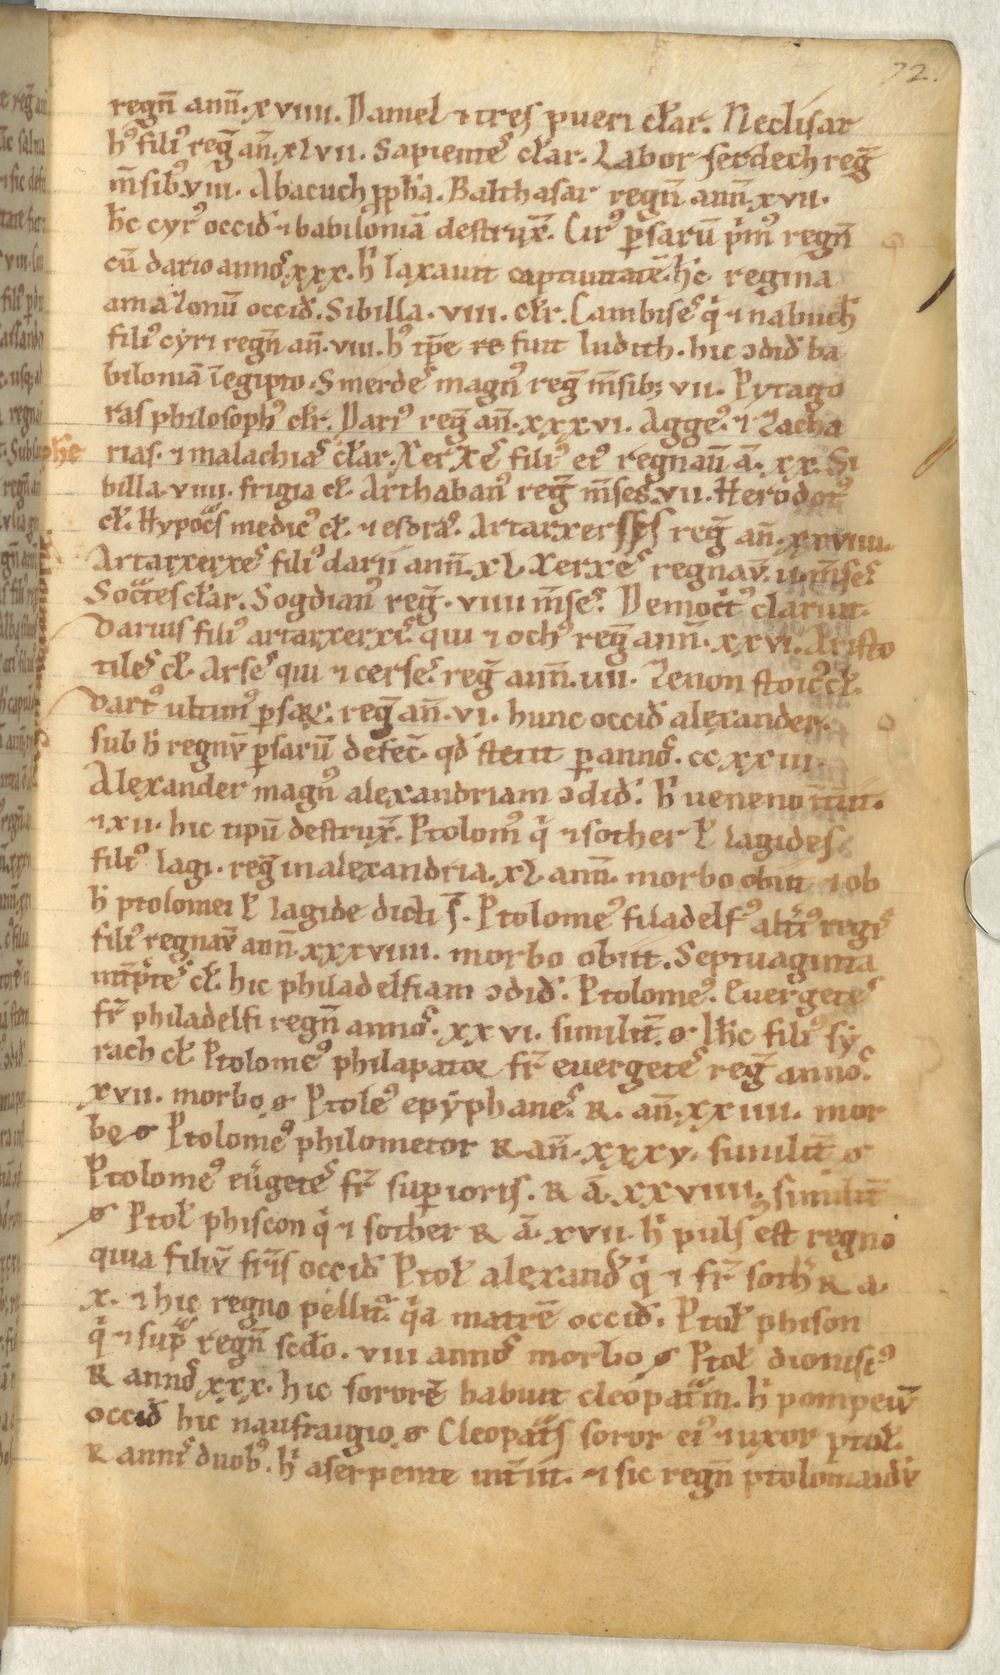 72.
regn̄ ann̄. xviiii. Daniel ⁊ tres pueri cƚar. Neclisar
hꝰ filiꝰ reḡ an̄. xlvii. Sapiem̄ cƚar. Labor serdech reḡ
m̄sibꝰ. viii. Abacuch ꝓpħa. Balthasar regn̄ ann̄. xvii.
hc̄ cyrꝰ occid̄ ⁊ babiloniā destrux̄. Cirꝰ ꝑsarū pimꝰ regn̄
cū dario annoꝰ. xxx. h̓ laxauit captiuitatē. hc̄ regina
amazonū occid̄. Sibilla. viii. cƚr. Cambiseꝰ q̓ ⁊ nabuch̄
filiꝰ cyri regn̄ an̄. viii. hꝰ tp̄e fuit Iudith. hic ↄdid̄ ba
biloniā ī egipto. Smerdeꝰ magnꝰ reḡ m̄sibꝫ vii. Pytago
ras philosophꝰ cƚr. Dariꝰ reḡ an̄. xxxvi. Aggeꝰ. ⁊ Zacha
rias. ⁊ malachiaꝰ cƚar. Xerxeꝰ filiꝰ eiꝰ regnau̅ ā. xx. Si
billa. viiii. frigia cƚ. Arthabanꝰ reḡ m̄ses. vii. Herodotꝰ
cƚ. Hypoc̄s medicꝰ cƚ. ⁊ esdraꝰ. Artarxerses reḡ an̄. xxviiii.
Artarxerxeꝰ filiꝰ darii ann̄. xl. Xerxeꝰ regnav̄. ii. m̄seꝰ
Soc̄tes cƚar. Sogdianꝰ reḡ. viiii m̄seꝰ. Democ̄tꝰ claruit.
Darius filiꝰ artarxerxiꝰ qui ⁊ ochꝰ reḡ ann̄. xxvi. Aristo
tileꝰ cƚ. Arseꝰ qui ⁊ cerseꝰ. reḡ ann̄. iiii. Zenon stoicꝰ cƚ.
Dariꝰ ultimꝰ ꝑsaꝝ. reḡ an̄. vi. hunc occid̄ alexander.
sub h̓ regnv̄ ꝑsarū defec̄. qd̄ stetit ꝑ annoꝰ. ccxxiii.
Alexander magnꝰ alexandriam ↄdid̄. h̓ ueneno īt̄iit.
⁊ xii. hic tipū destrux̄. Ptolomꝰ q̓ ⁊ sother ƚ lagides
filiꝰ lagi. reḡ in alexandria. xl. ann̄. morbo obiit ⁊ ob
h̓ ptolomei ƚ lagide dicti s̄. Ptolomeꝰ filadelfꝰ alt̓iꝰ regiꝰ
filiꝰ regnav̄ ann̄. xxxviiii. morbo obiit. Septuaginta
int̄p̄teꝰ cƚ. hic philadelfiam ↄdid̄. Ptolomeꝰ. Euergeteꝰ
fr̄ philadelfi regn̄ annoꝰ. xxvi. similit̄ o. Ihc̄ filiꝰ sy
rach cƚ Ptolomeꝰ philapator fr̄ euergeteꝰ reḡ annoꝰ.
xvii. morbo o Ptoleꝰ epyphaneꝰ. R. an̄. xxiiii. mor
bo o Ptolomeꝰ philometor R an̄. xxxv. similit̄ o
Ptolomeꝰ eu̓geteꝰ fr̄ superioris. R ā. xxviiii. similit̄
o Ptoƚ phiscon q̓ ⁊ sother R ā. xvii. h̓ puls̄ est regno
quia filiv̄ fr̄is occid̄ Ptoƚ alexand̓ q̓ ⁊ fr̄ soth̓ R a.
x. ⁊ hic regno pellit̉. q̓a matrē occid̄. Ptoƚ phison
q̓ ⁊ sup̄ regn̄ scdo. viii annoꝰ morbo o Ptoƚ dionisiꝰ
R annoꝰ xxx. hic sororē habuit cleopat̄m. h̓ pompeiv̄
occid̄ hic naufragio o Cleopat̄s soror eiꝰ ⁊ uxor ptoƚ.
R anniꝰ duobꝰ. h̓ a serpente int̄iit. ⁊ sic regn̄ ptolomaidv̄